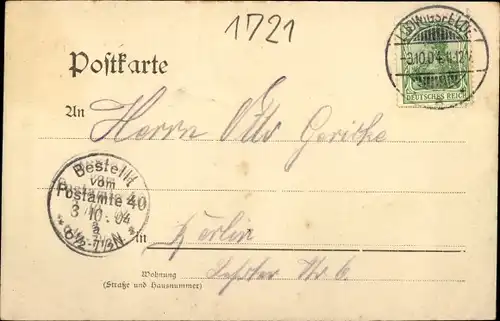 1721
LUDWIGSFELDE
3.10.04.11.12V
DEUTSCHES REICH
Postkarte
An
Herrn Otto Gericke
Bestellt
vom
Postamte 40
3/10. 04
6½-7½N
in Berlin
Wohnung
(Straße und Hausnummer)
Lehrter Str 6